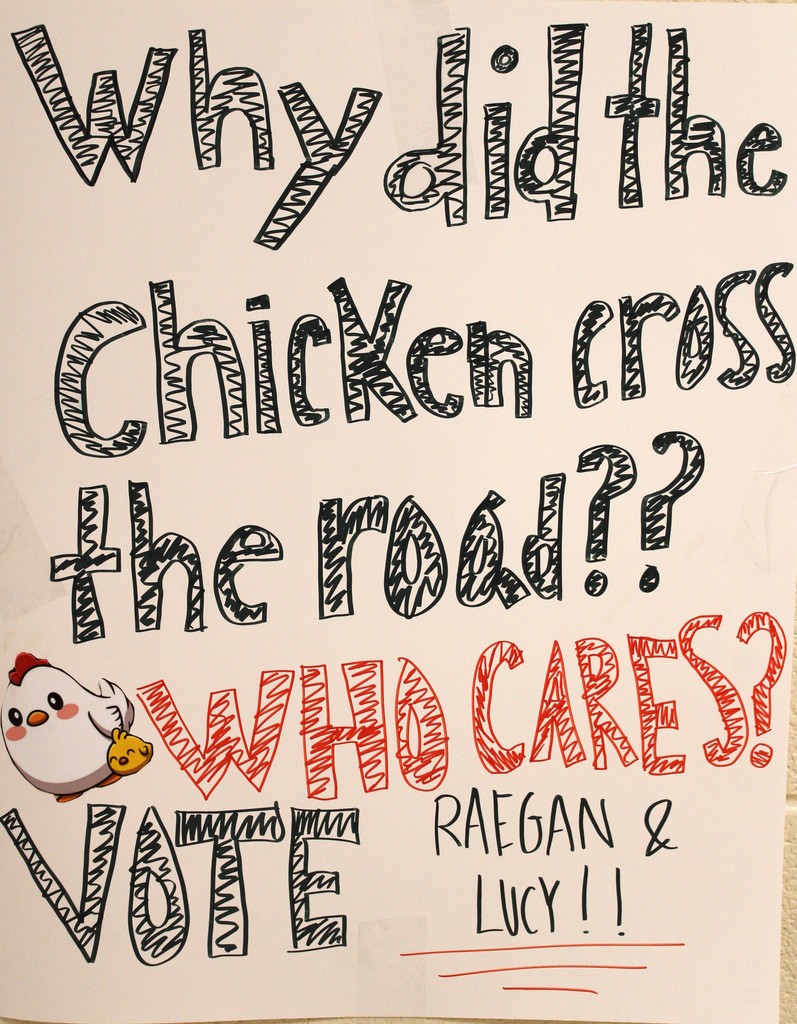 Why did the
Chicken cross
the road??
WHO CARES?
VOTE RAEGAN &
LUCY!!